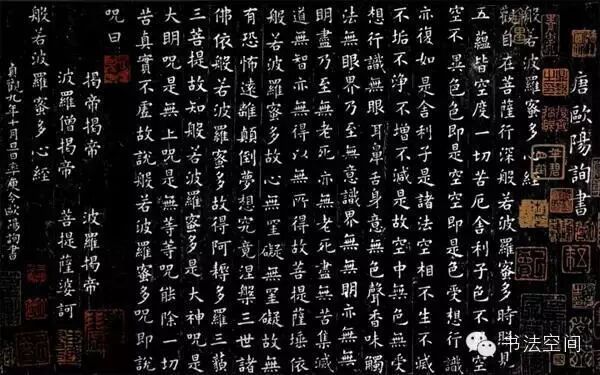 唐歐陽詢書
般若波羅蜜多心經
觀自在菩薩行深般若波羅蜜多時照見
五蘊皆空度一切苦厄舍利子色不異空
空不異色色即是空空即是色受想行識
亦復如是舍利子是諸法空相不生不滅
不垢不淨不增不減是故空中無色無受
想行識無眼耳鼻舌身意無色聲香味觸
法無眼界乃至無意識界無無明亦無無
明盡乃至無老死亦無老死盡無苦集滅
道無智亦無得以無所得故菩提薩埵依
般若波羅蜜多故心無罣礙無罣礙故無
有恐怖遠離顛倒夢想究竟涅槃三世諸
佛依般若波羅蜜多故得阿耨多羅三藐
三菩提故知般若波羅蜜多是大神呪是
大明呪是無上呪是無等等呪能除一切
苦真實不虛故說般若波羅蜜多呪即說
呪曰
揭帝揭帝 波羅揭帝
波羅僧揭帝 菩提薩婆訶
般若波羅蜜多心經
貞觀九年十月旦日率更令歐陽詢書
书法空间